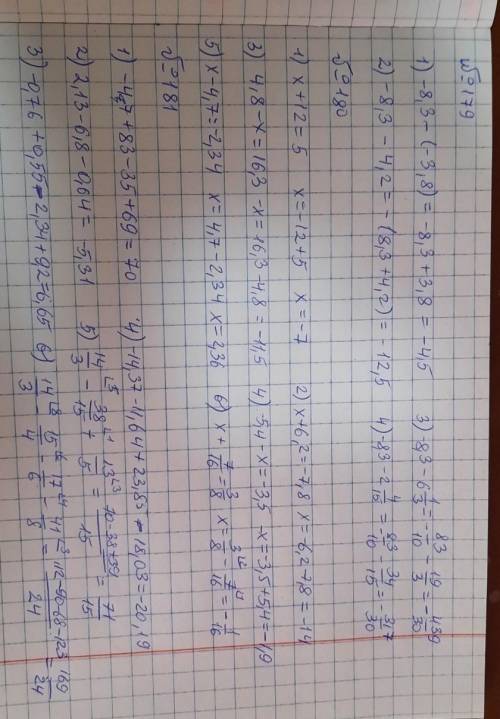 №179
1) -8,3-(-3,8)=-8,3+3,8=-4,5 3) -8,3-6 1/3=-83/10-19/3=-439/30
2) -8,3-4,2=-(8,3+4,2)=-12,5 4) -8,3-2 4/15=-83/10-34/15=-317/30
№180
1) x+12=5 x=-12+5 x=-7 2) x+6,2=-7,8 x=-6,2-7,8=-14
3) 4,8-x=16,3 -x=16,3-4,8=-11,5 4) -5,4-x=-3,5 -x=3,5+5,4=-1,9
5) x-4,7=-2,34 x=4,7-2,34 x=2,36 6) x+7/16=3/8 x=3/8-7/16=-1/16
№181
1) -47+83-35+69=70 4) -14,37-11,64+23,85-18,03=20,19
2) 2,13-6,8-0,64=-5,31 5) 14/3-38/15+13/5=70-38+39/15=71/15
3) -0,76+0,55-2,34+9,2=6,65 6) 14/3-15/4-17/6-41/8=112-90-68-123/24=169/24